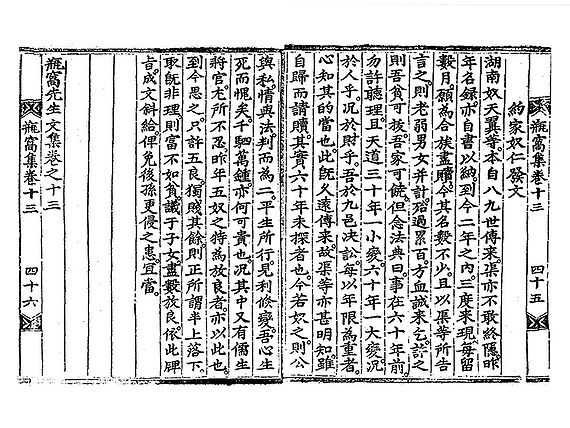 瓶窩集卷十三
四十五
約家奴仁發文
湖南奴天翼等本自八九世傳来渠亦不敢終隱昨
年名錄亦自書以納到今二年之內三度来現每留
數月願為合族盡贖今其名數不少且以渠等所告
言之則老弱男女并計殆過累百方血誠来乞許之
則吾貧可拔吾家可饒但念法典曰事在六十年前
勿許聽理且天道三十年一小變六十年一大變況
於人乎況於財乎吾於九邑決訟每以年限為重者
心知其的當也此既久遠傳来故渠等亦甚明知雖
自歸而請贖其實六十年未探者也今若奴之則公
與私情與法判而為二平生所行見利倏變吾心生
死而愧矣千駟萬鍾亦何可貴也況其中又有儒生
將官尤所不忍昨年五奴之特為放良者亦以此也
到今思之只許五良獨賤其餘則正所謂半上落下
取既非理則富不如貧議于子女盡數放良依此碑
旨成文斜給俾免後孫更侵之患宜當
瓶窩先生文集卷之十三
瓶窩集卷十三
四十六